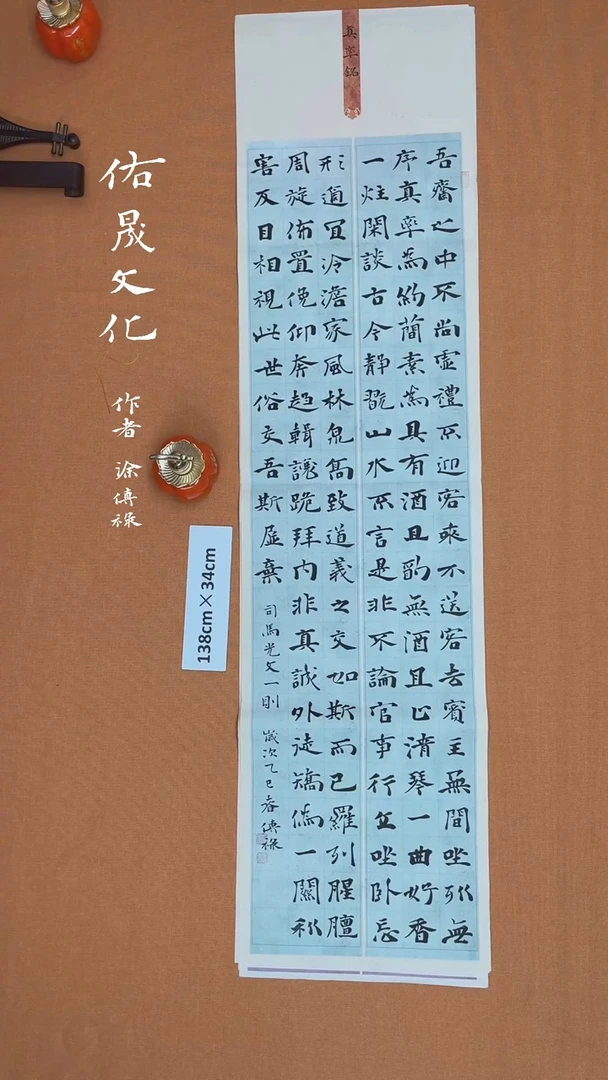 真率銘
吾齋之中不尚虛禮不迎客來不送客去賓主無間坐列無
序真率為約簡素為具有酒且酌無酒且止清琴一曲好香
一炷閑談古今靜翫山水不言是非不論官事行立坐臥忘
形適宜冷澹家風林泉高致道義之交如斯而已羅列腥膻
周旋佈置俛仰奔趨輯讓跪拜內非真誠外徒矯偽一關利
害反目相視此世俗交吾斯屏棄
司馬光文一則 歲次乙巳春傳祿
佑晟文化
作者 涂傳祿
138cm×34cm